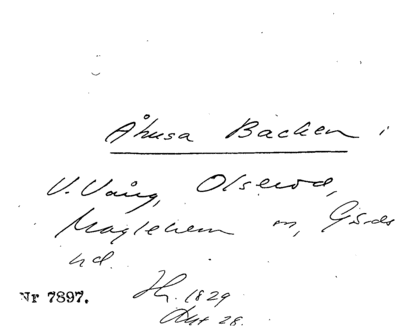 Åhusa Backen i
V. Vång, Olserod,
Maglehem sn, Gärds
hd.
Nr 7897. Hr. 1829
Akt 28.